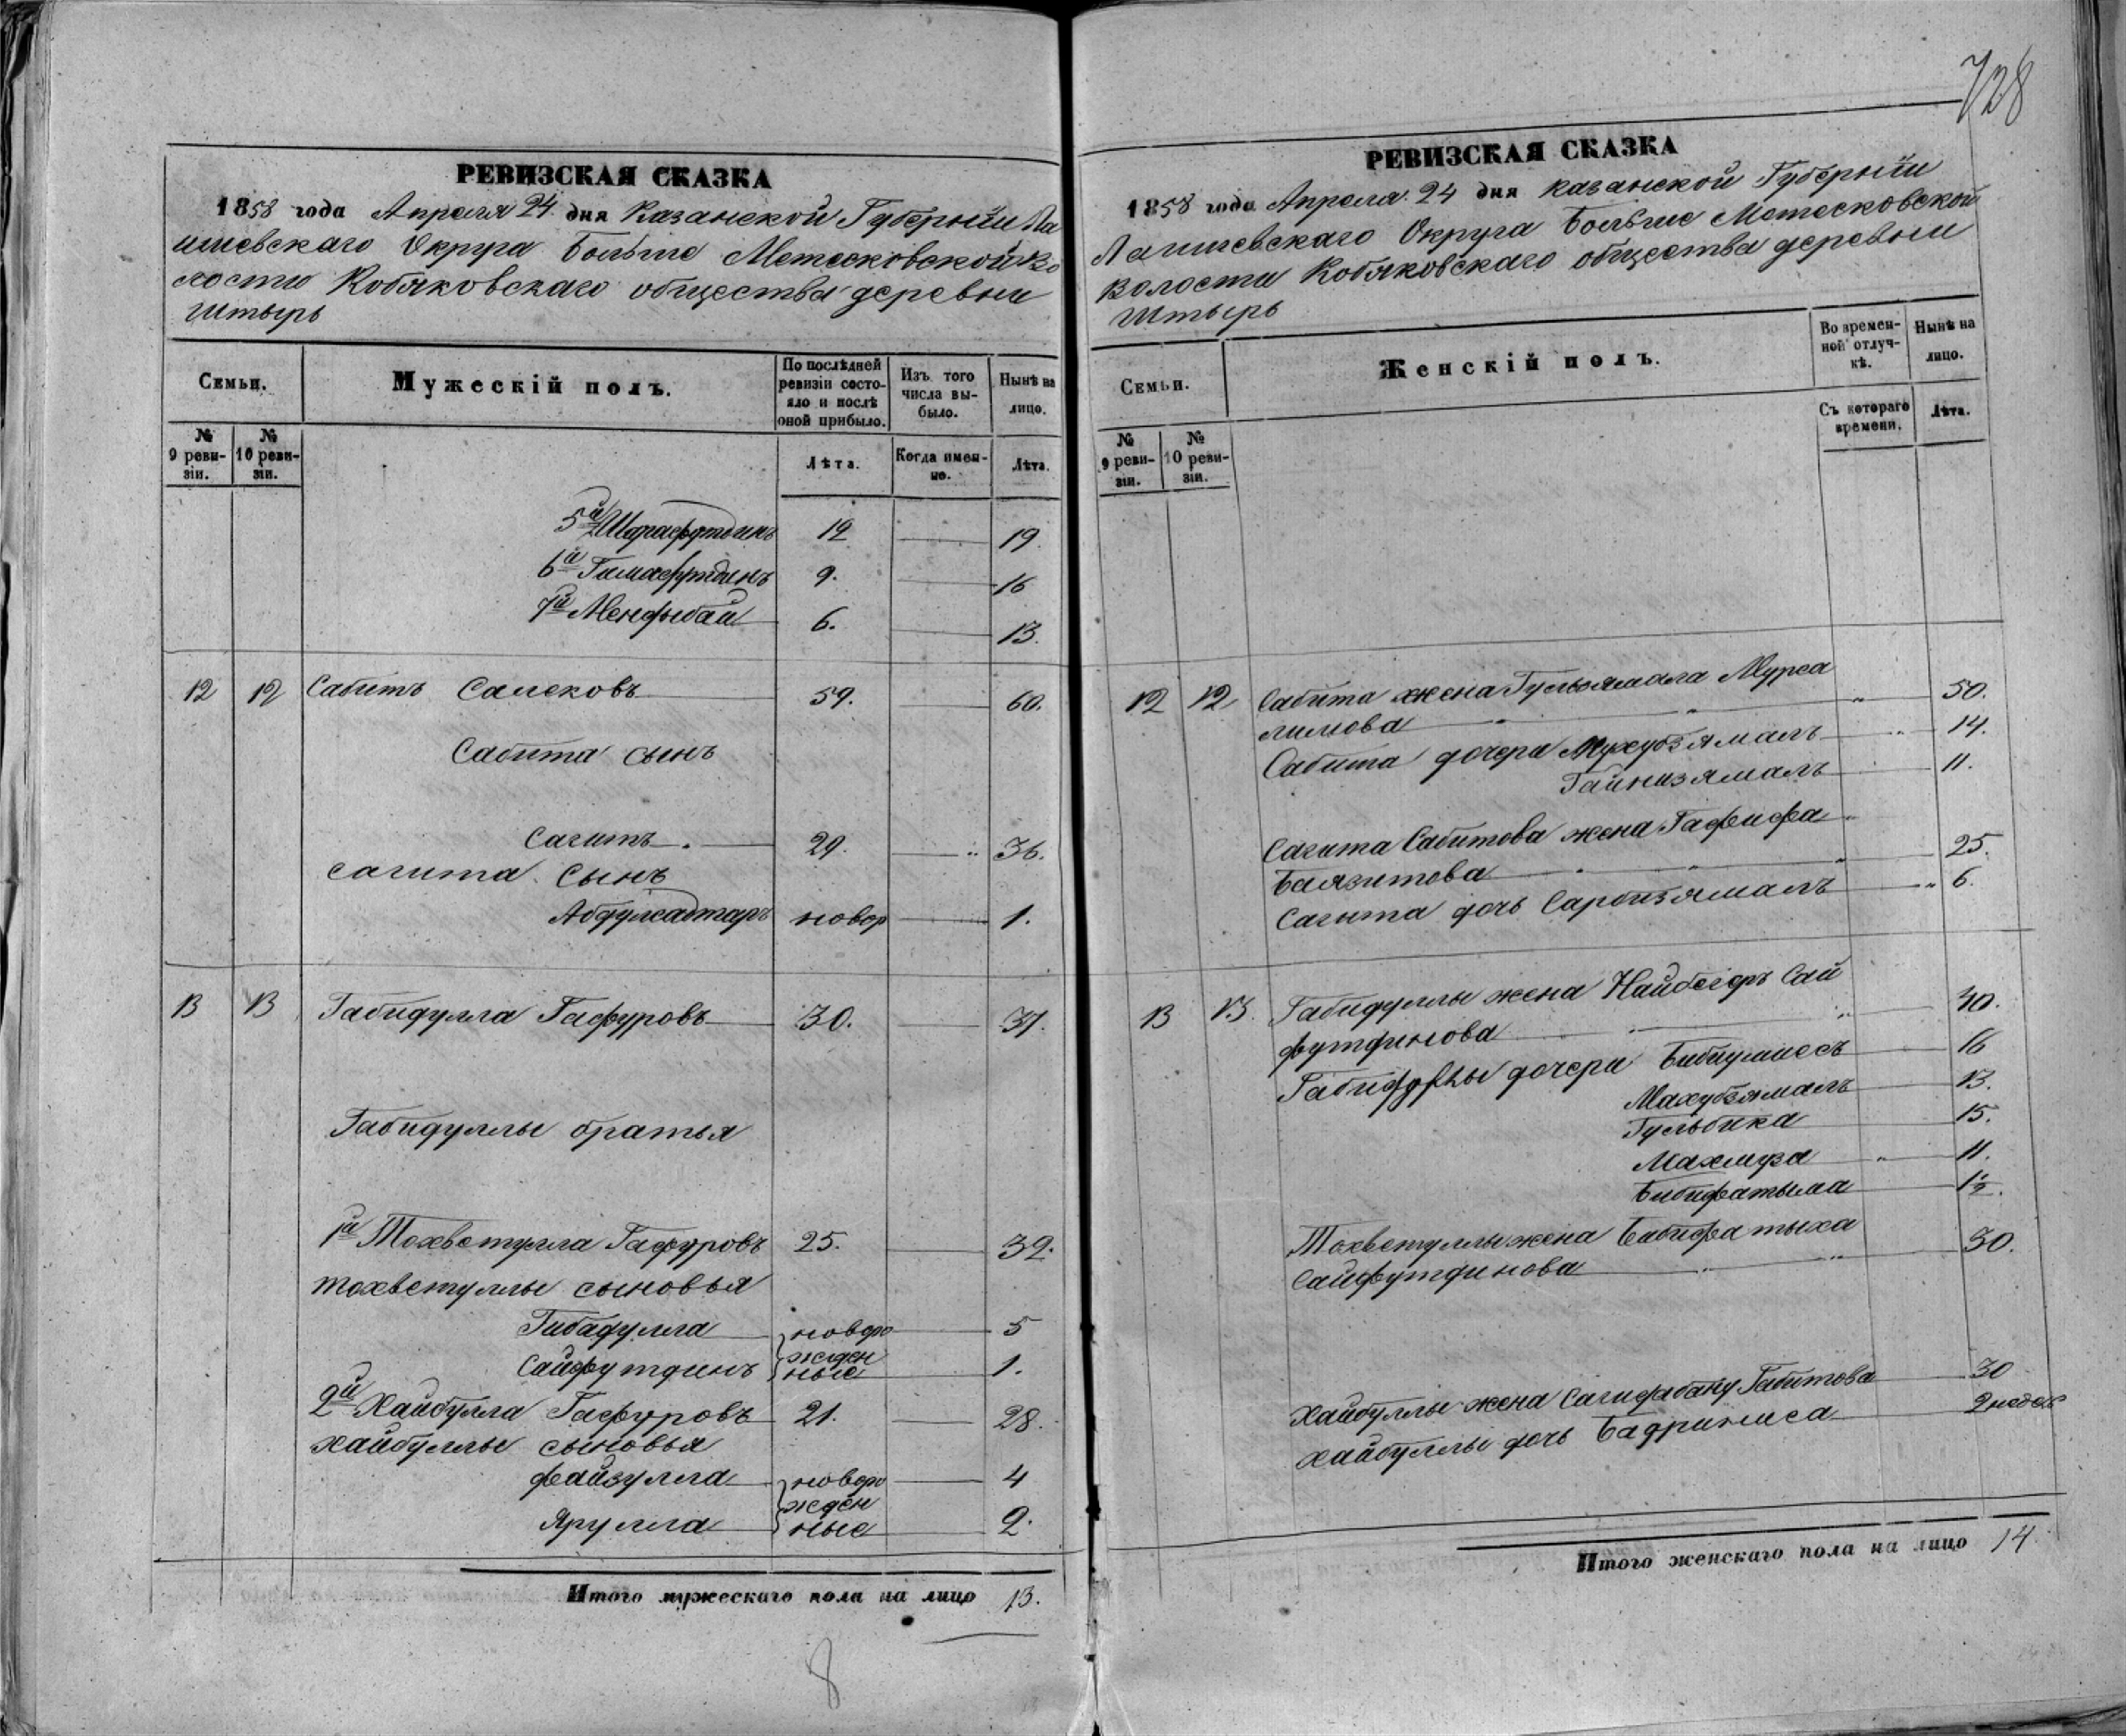 728
РЕВИЗСКАЯ СКАЗКА
1858 года Апреля 24 дня Казанской Губернiи Ла
ишевскаго Округа Больше Метесковской во
лости Кобяковскаго общества деревни
Штырь
Семьи.
Мужескій полъ.
По послѣдней ревизіи состояло и послѣ оной прибыло.
Изъ того числа выбыло.
Нынѣ на лицо.
№ 9 ревизіи.
№ 10 ревизіи.
Лѣта.
Когда именно.
Лѣта.
5й Шарафутдинъ 12 19.
6й Гимафутдинъ 9. 16
7й Мендыбай 6. 13.
12 12 Сабитъ Салековъ 59. 60.
Сабита сынъ
Сагитъ 29. 36.
Сагита сынъ
Абдулсаттаръ новор 1.
13 13 Габидулла Гафуровъ 30. 37.
Габидуллы братья
1й Тохветулла Гафуровъ 25. 32.
Тохветуллы сыновья
Гибадулла новоро 5
жден
Сайфутдинъ ные 1.
2й Хайбулла Гафуровъ 21. 28.
Хайбуллы сыновья
Файзулла новоро 4
жден
Ярулла ные 2.
Итого мужескаго пола на лицо 13.
8
РЕВИЗСКАЯ СКАЗКА
1858 года Апреля 24 дня Казанской Губернiи
Лаишевскаго Округа Больше Метесковской
волости Кобяковскаго общества деревни
Штырь
Семьи.
Женскій полъ.
Во временной отлучкѣ.
Нынѣ на лицо.
№ 9 ревизіи.
№ 10 ревизіи.
Съ котораго времени.
Лѣта.
12 12 Сабита жена Гульзямала Мурса
лимова 50.
Сабита дочери Мухубзямалъ 14.
Гайнизямалъ 11.
Сагита Сабитова жена Гафифа
Баязитова 25.
Сагита дочь Сарбизямалъ 6.
13 13. Габидуллы жена Найбедръ Сай
футдинова 40.
Габидуллы дочери Бибиумиесъ 16
Махубзямалъ 13.
Гульбика 15.
Махмуза 11.
Бибифатыма 1½.
Тохветуллы жена Бибифатыха
Сайфутдинова 30.
Хайбуллы жена Сагидабану Габитова 30
Хайбуллы дочь Бадриниса 2 недел
Итого женскаго пола на лицо 14.